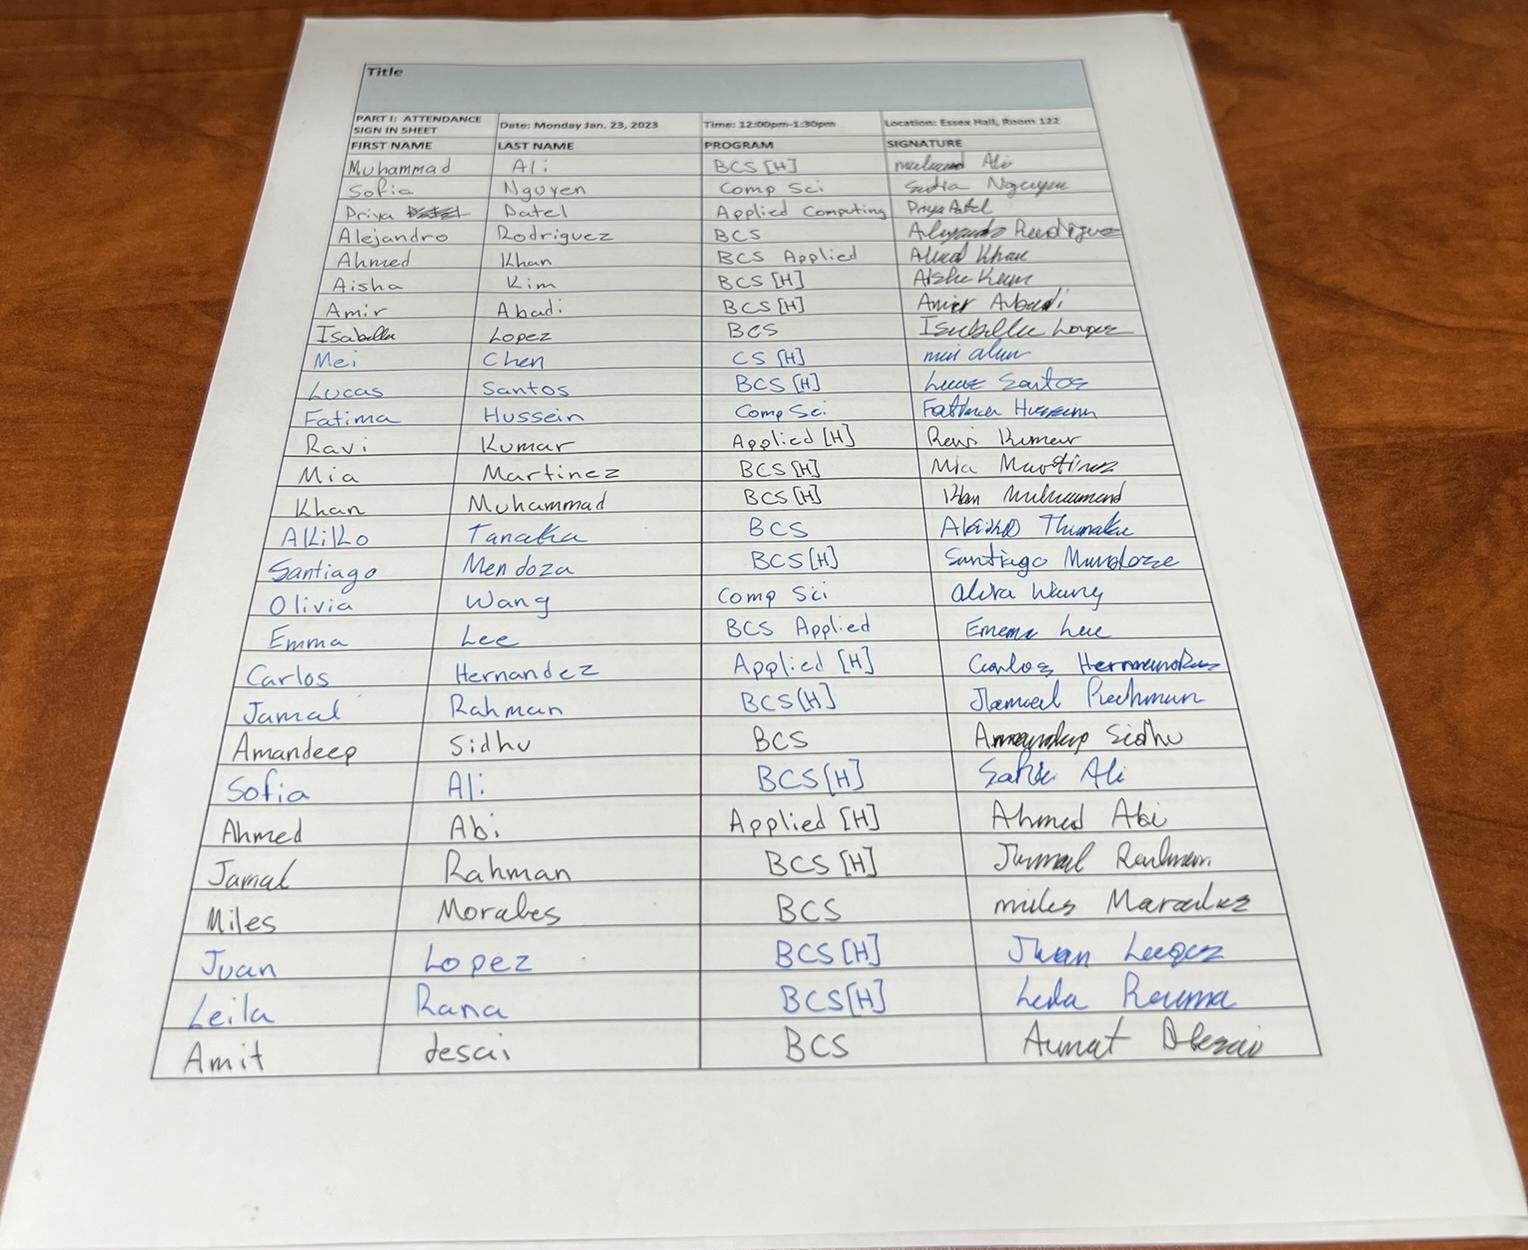 Title
PART I: ATTENDANCE SIGN IN SHEET Date: Monday Jan. 23, 2023 Time: 12:00pm-1:30pm Location: Essex Hall, Room 122
FIRST NAME LAST NAME PROGRAM SIGNATURE
Muhammad Ali BCS [H] Ali
Sofia Nguyen Comp Sci Sofia Nguyen
Priya Patel Applied Computing Priya Patel
Alejandro Rodriguez BCS Alejandro Rodriguez
Ahmed Khan BCS Applied Ahmed Khan
Aisha Kim BCS [H] Aisha Kim
Amir Abadi BCS [H] Amir Abadi
Isabella Lopez BCS Isabella Lopez
Mei Chen CS [H] mei chen
Lucas Santos BCS [H] Lucas Santos
Fatima Hussein Comp Sci Fatima Hussein
Ravi Kumar Applied [H] Ravi Kumar
Mia Martinez BCS [H] Mia Martinez
Khan Muhammad BCS [H] Khan Muhammad
Akiko Tanaka BCS Akiko
Santiago Mendoza BCS [H] Santiago Mendoza
Olivia Wang Comp Sci Wang
Emma Lee BCS Applied Emma Lee
Carlos Hernandez Applied [H] Carlos Hernandez
Jamal Rahman BCS [H] Jamal Rahman
Amandeep Sidhu BCS Amandeep Sidhu
Sofia Ali BCS [H] Sofia Ali
Ahmed Abi Applied [H] Ahmed Abi
Jamal Rahman BCS [H] Jamal Rahman
Miles Morales BCS miles Morales
Juan Lopez BCS [H] Juan Lopez
Leila Rana BCS [H] Leila
Amit desai BCS Desai